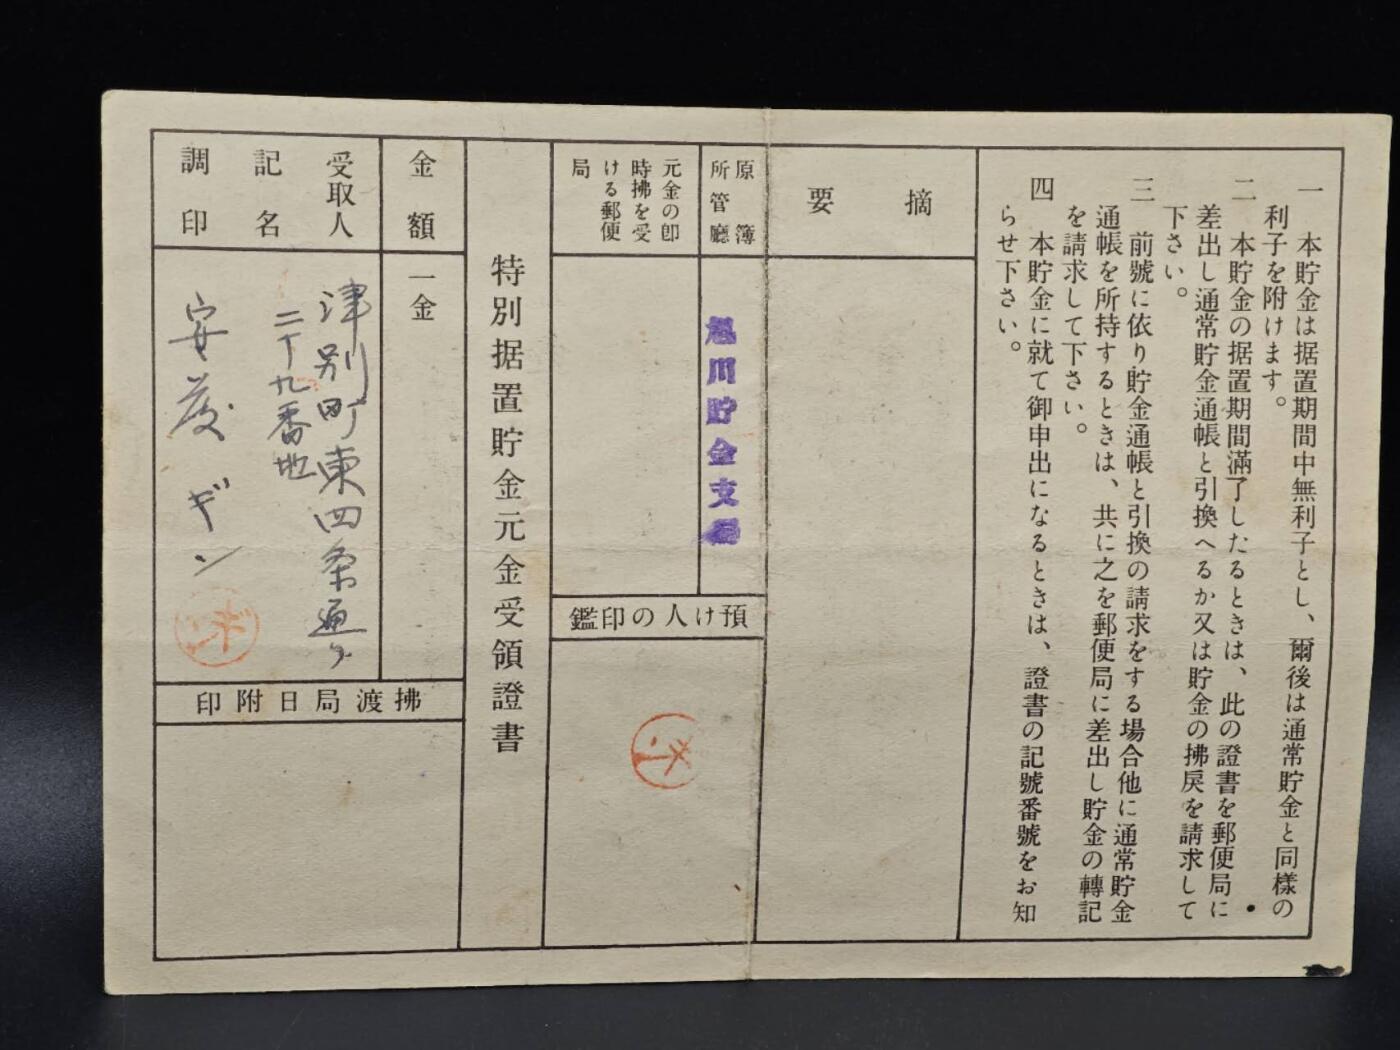 一　本貯金は据置期間中無利子とし、爾後は通常貯金と同樣の
利子を附けます。
二　本貯金の据置期間滿了したるときは、此の證書を郵便局に
差出し通常貯金通帳と引換へるか又は貯金の拂戻を請求して
下さい。
三　前號に依り貯金通帳と引換の請求をする場合他に通常貯金
通帳を所持するときは、共に之を郵便局に差出し貯金の轉記
を請求して下さい。
四　本貯金に就て御申出になるときは、證書の記號番號をお知
らせ下さい。
摘要
原簿
所管廳
旭川貯金支局
元金の卽
時拂を受
ける郵便
局
預け人の印鑑
特別据置貯金元金受領證書
金額
一金
受取人
記名
調印
津別町東四条通り
二十九番地
安 ギン
拂渡局日附印